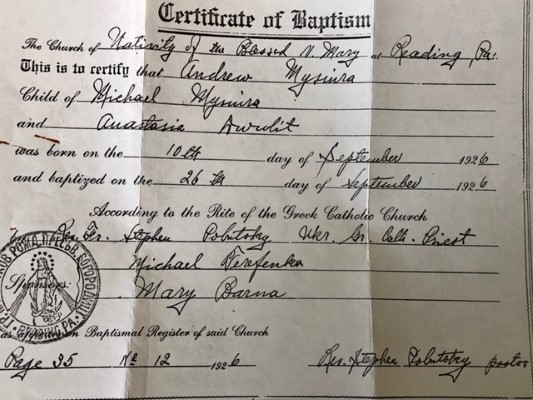 Certificate of Baptism
The Church of Nativity of the Blessed V. Mary at Reading, Pa.
This is to certify that Andrew Mysiura
Child of Michael Mysiura
and Anastasia Dwulit
was born on the 10 th day of September 1926
and baptized on the 26 th day of September 1926
According to the Rite of the Greek Catholic Church
Rev. Fr. Stephen Pobutsky Ukr. Gr. Cath. Priest
Michael
Sponsors:
Mary Barna
as appears on Baptismal Register of said Church
Page 35 No 12 1926 Rev. Stephen Pobutsky pastor
READING, PA.